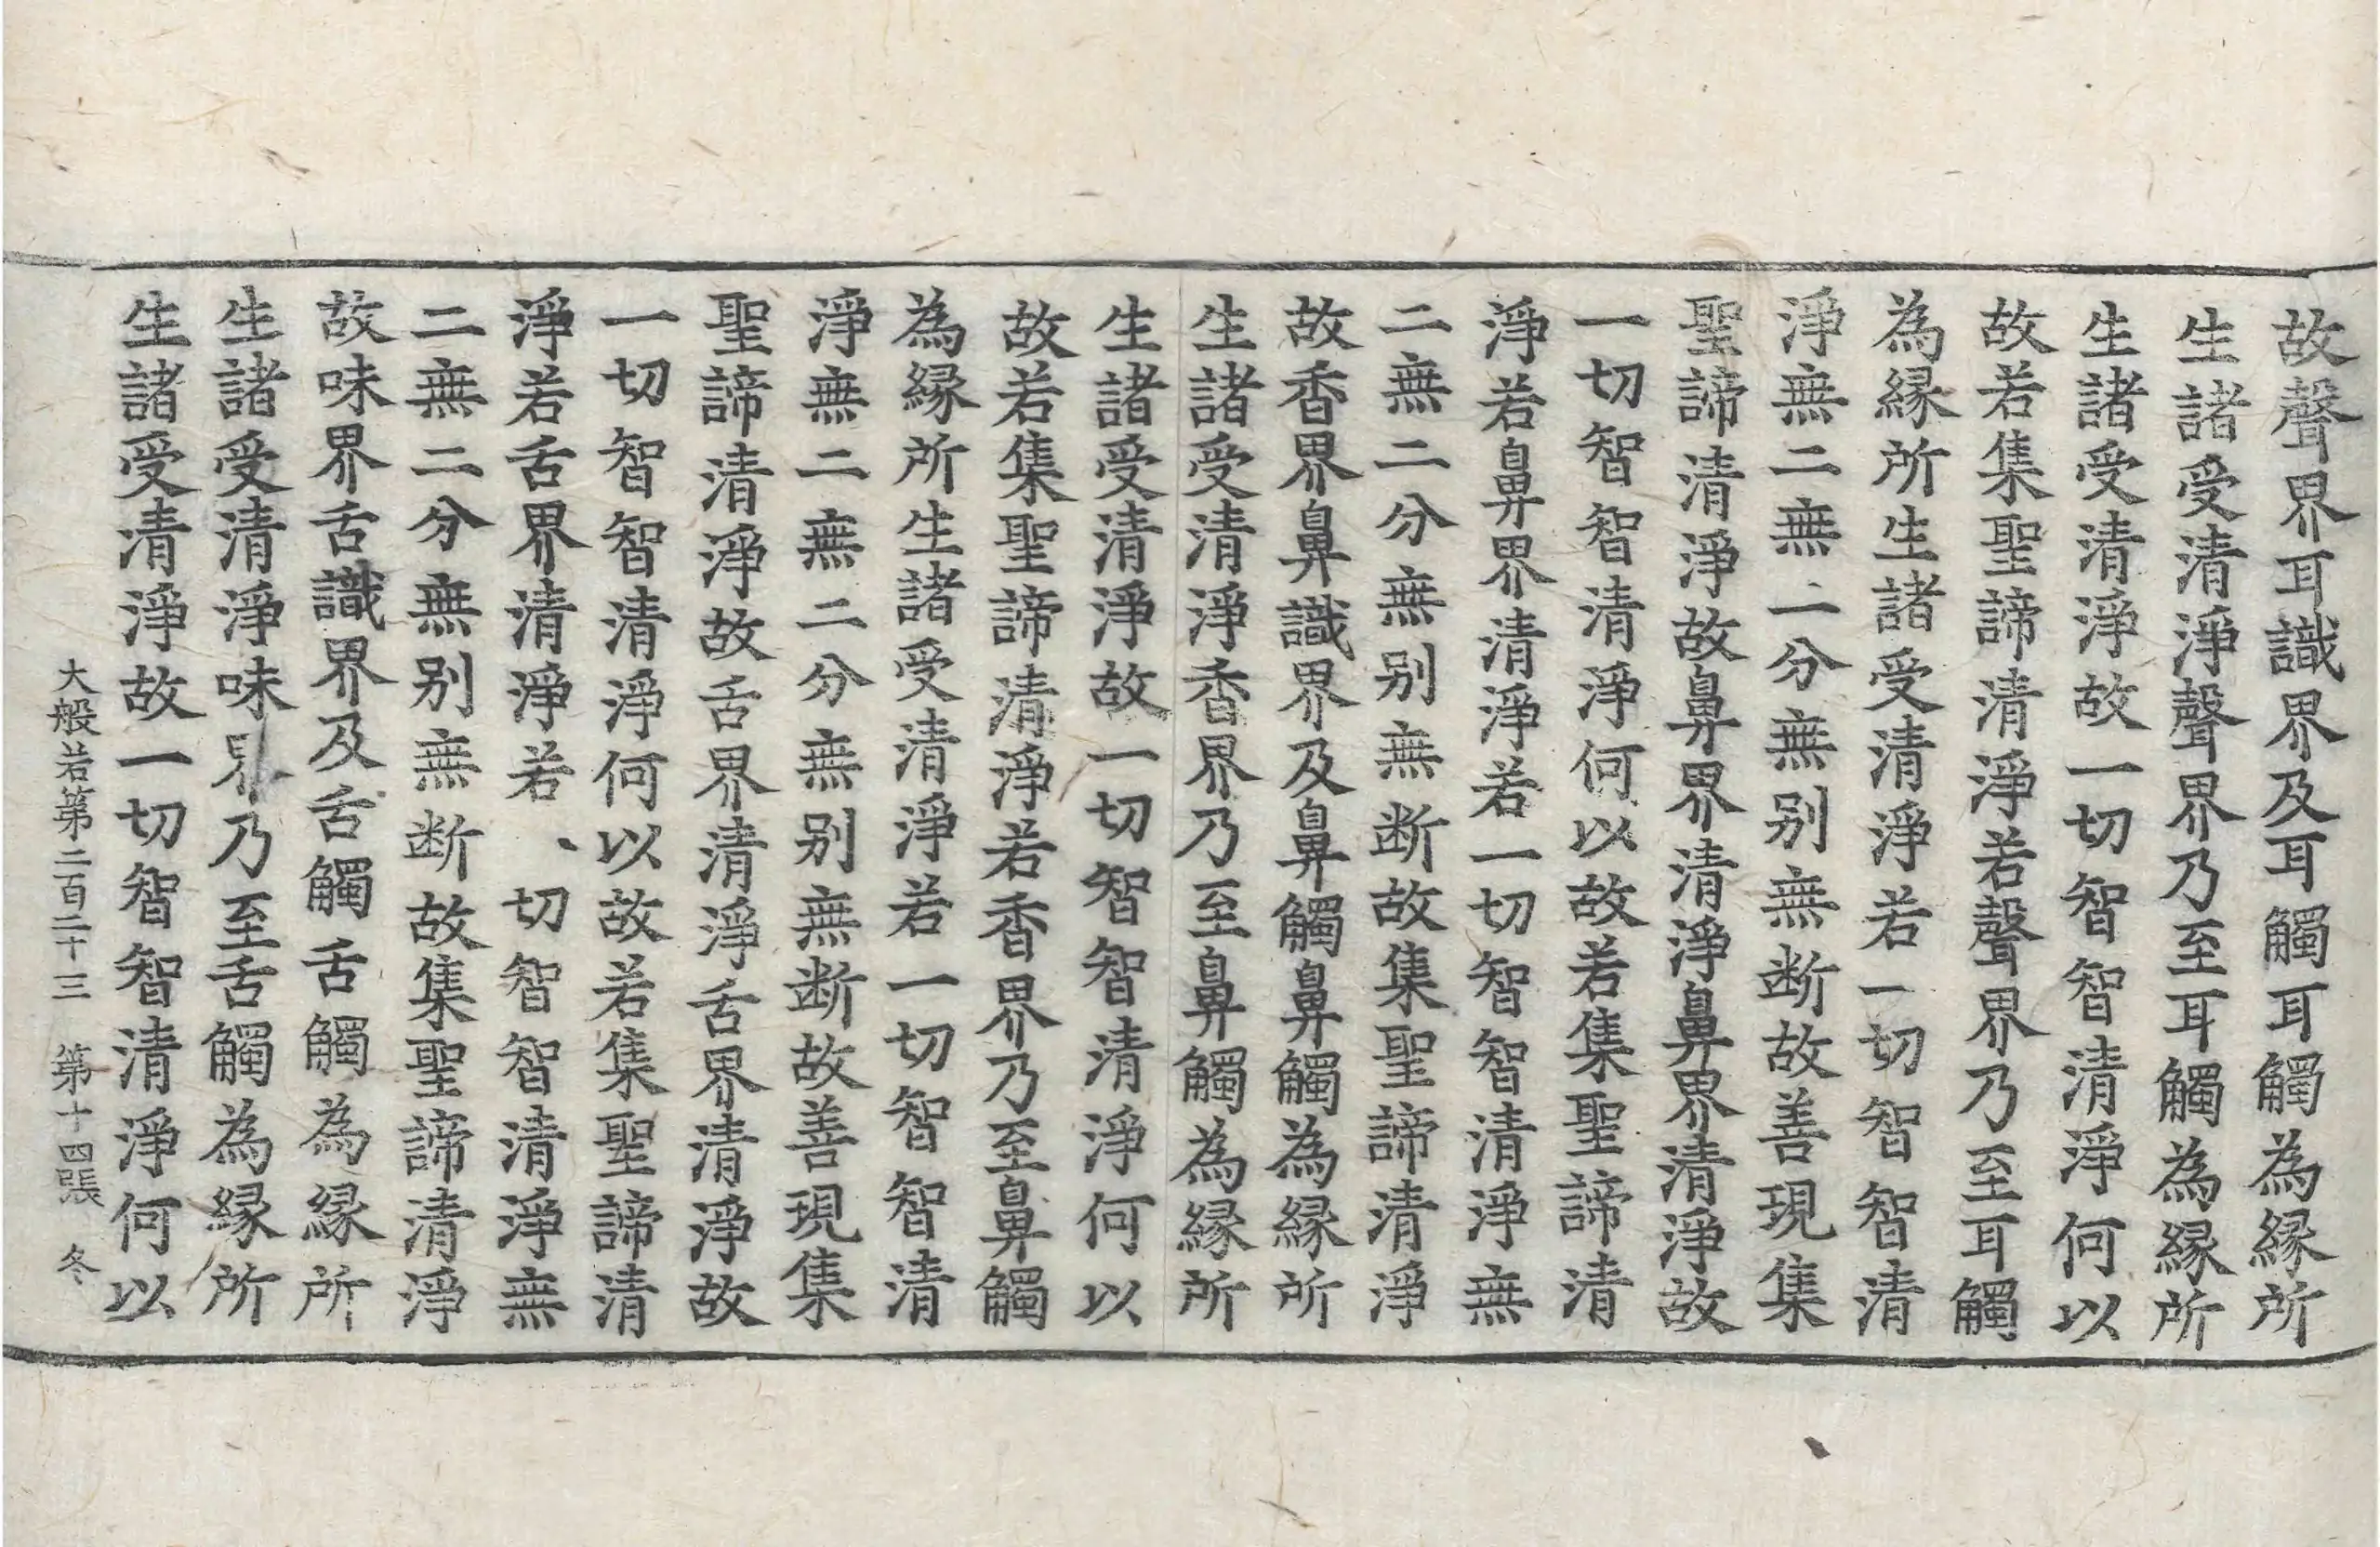 故聲界耳識界及耳觸耳觸為縁所
生諸受清淨聲界乃至耳觸為縁所
生諸受清淨故一切智智清淨何以
故若集聖諦清淨若聲界乃至耳觸
為縁所生諸受清淨若一切智智清
淨無二無二分無别無断故善現集
聖諦清淨故鼻界清淨鼻界清淨故
一切智智清淨何以故若集聖諦清
淨若鼻界清淨若一切智智清淨無
二無二分無别無断故集聖諦清淨
故香界鼻識界及鼻觸鼻觸為縁所
生諸受清淨香界乃至鼻觸為縁所
生諸受清淨故一切智智清淨何以
故若集聖諦清淨若香界乃至鼻觸
為縁所生諸受清淨若一切智智清
淨無二無二分無别無断故善現集
聖諦清淨故舌界清淨舌界清淨故
一切智智清淨何以故若集聖諦清
淨若舌界清淨若切智智清淨無
二無二分無别無断故集聖諦清淨
故味界舌識界及舌觸舌觸為縁所
生諸受清淨味界乃至舌觸為縁所
生諸受清淨故一切智智清淨何以
大般若第二百二十三 第十四張 冬